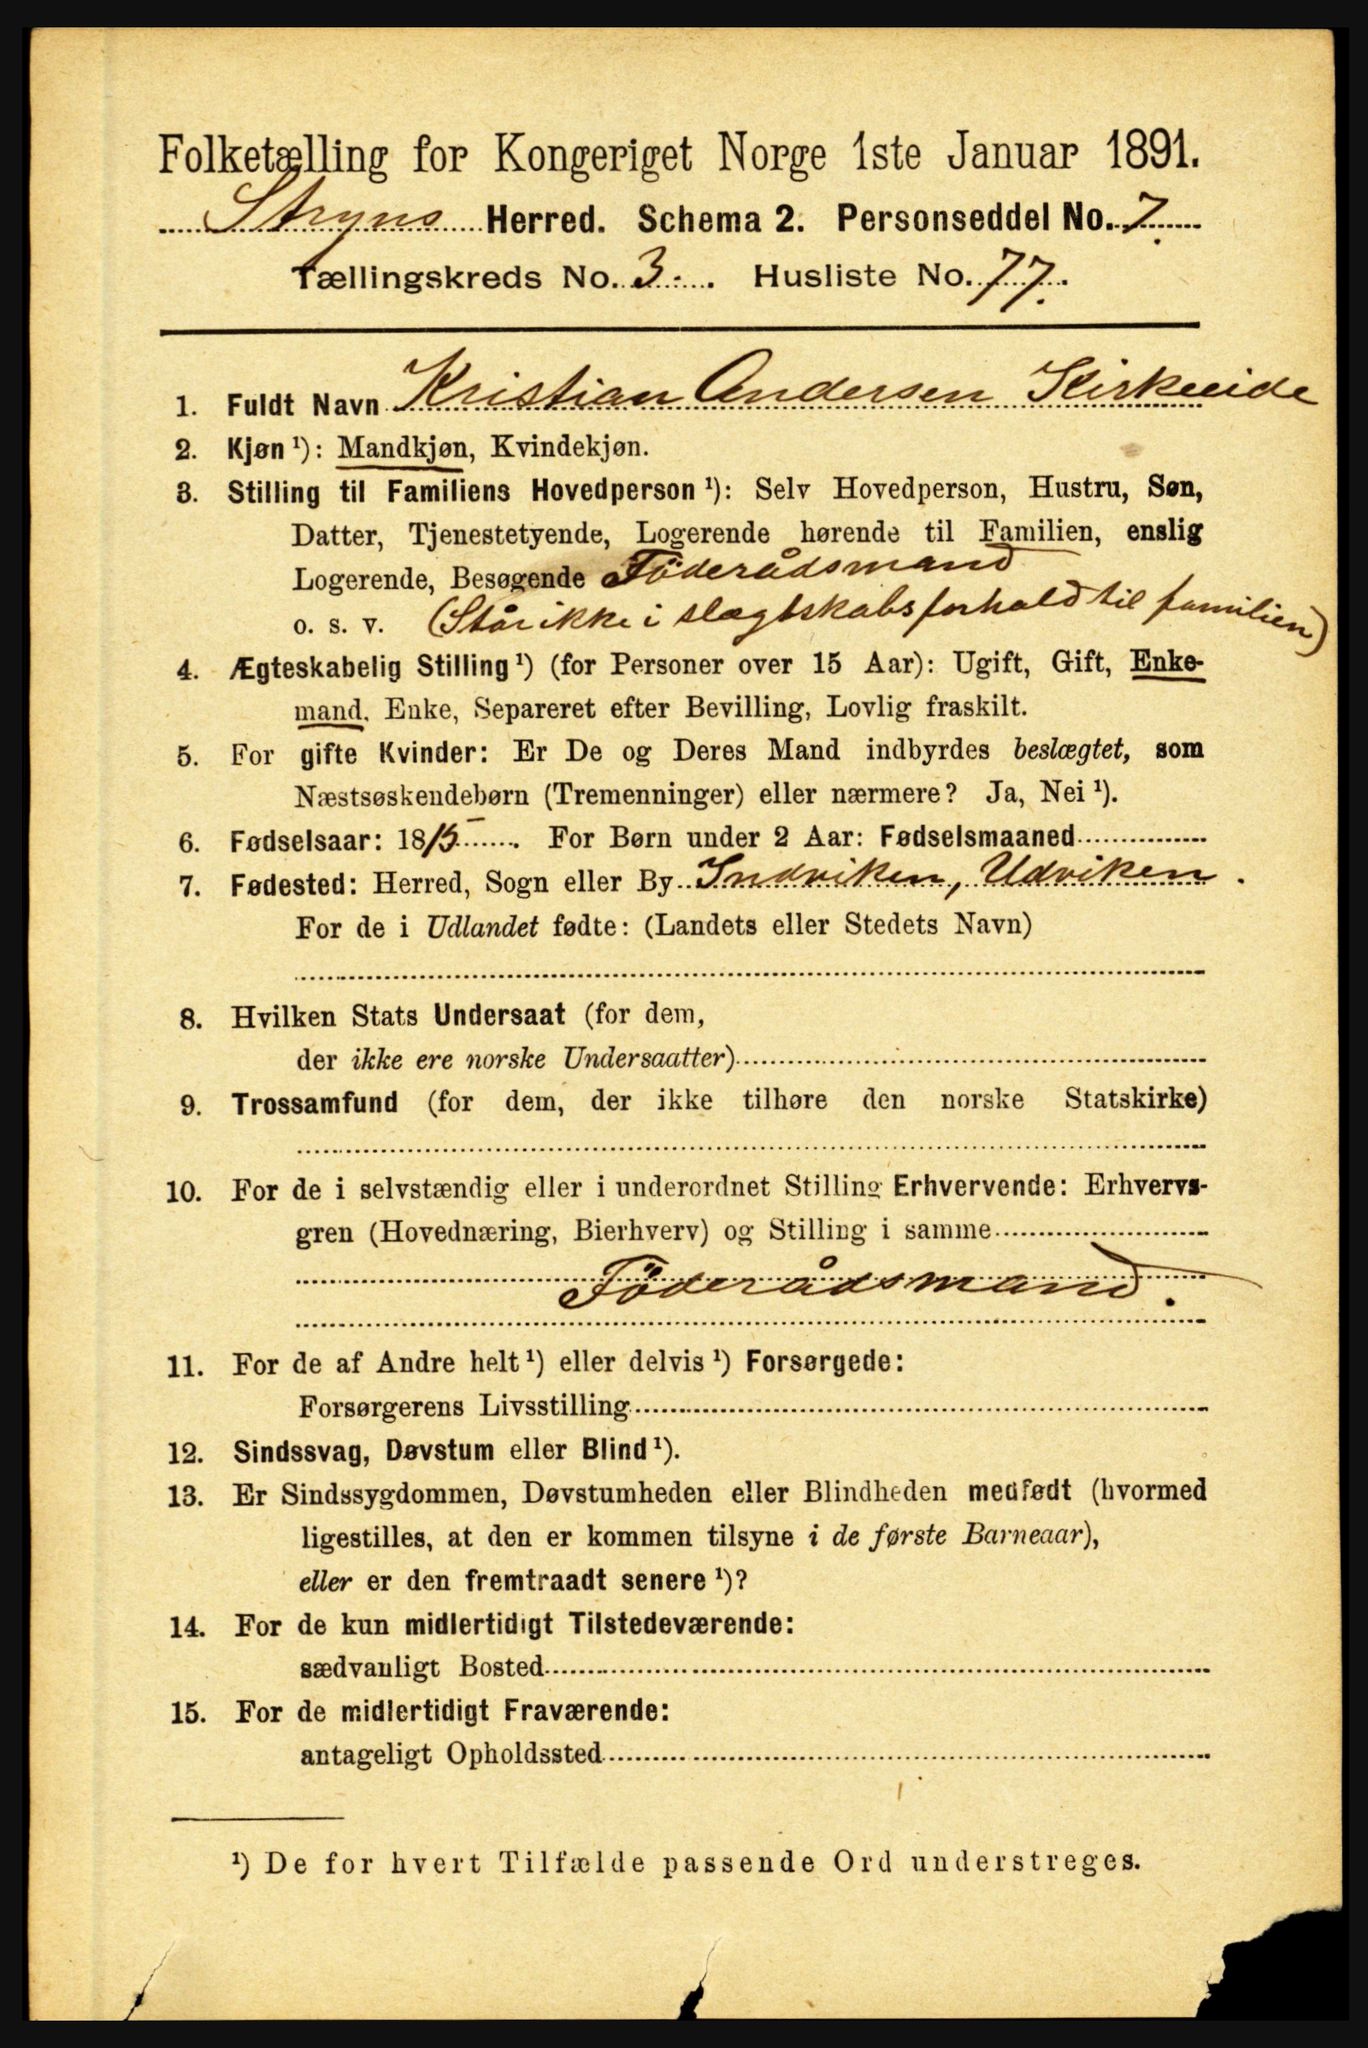 Folketælling for Kongeriget Norge 1ste Januar 1891.
Stryns Herred. Schema 2. Personseddel No. 7.
Tællingskreds No. 3. Husliste No. 77.
1. Fuldt Navn Kristian Andersen Kirkeeide
2. Kjøn ¹): Mandkjøn, Kvindekjøn.
3. Stilling til Familiens Hovedperson ¹): Selv Hovedperson, Hustru, Søn,
Datter, Tjenestetyende, Logerende hørende til Familien, enslig
Logerende, Besøgende Föderådsmand
o. s. v. (Står ikke i slægtskabsforhold til familien)
4. Ægteskabelig Stilling ¹) (for Personer over 15 Aar): Ugift, Gift, Enke-
mand, Enke, Separeret efter Bevilling, Lovlig fraskilt.
5. For gifte Kvinder: Er De og Deres Mand indbyrdes beslægtet, som
Næstsøskendebørn (Tremenninger) eller nærmere? Ja, Nei ¹).
6. Fødselsaar: 1815. For Børn under 2 Aar: Fødselsmaaned
7. Fødested: Herred, Sogn eller By Indviken, Udviken.
For de i Udlandet fødte: (Landets eller Stedets Navn)
8. Hvilken Stats Undersaat (for dem,
der ikke ere norske Undersaatter)
9. Trossamfund (for dem, der ikke tilhøre den norske Statskirke)
10. For de i selvstændig eller i underordnet Stilling Erhvervende: Erhvervs-
gren (Hovednæring, Bierhverv) og Stilling i samme
Föderådsmand.
11. For de af Andre helt ¹) eller delvis ¹) Forsørgede:
Forsørgerens Livsstilling
12. Sindssvag, Døvstum eller Blind ¹).
13. Er Sindssygdommen, Døvstumheden eller Blindheden medfødt (hvormed
ligestilles, at den er kommen tilsyne i de første Barneaar),
eller er den fremtraadt senere ¹)?
14. For de kun midlertidigt Tilstedeværende:
sædvanligt Bosted
15. For de midlertidigt Fraværende:
antageligt Opholdssted
¹) De for hvert Tilfælde passende Ord understreges.